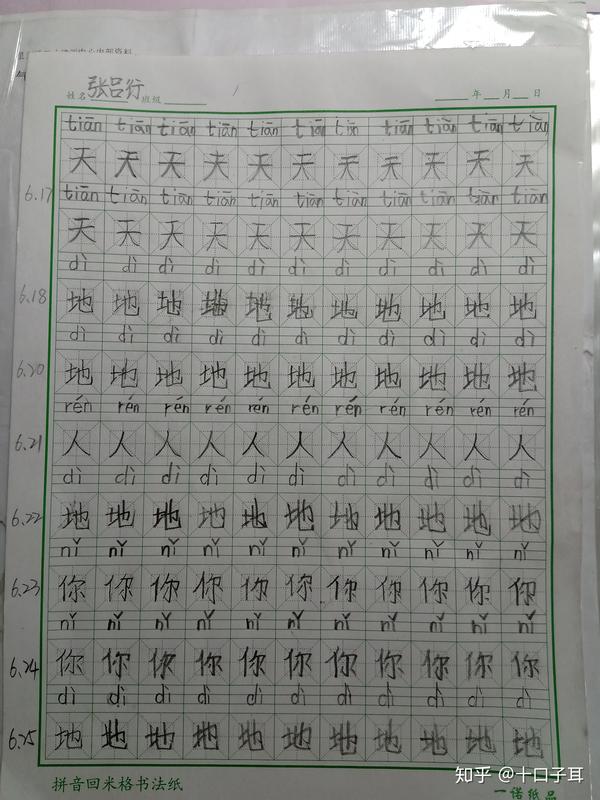 姓名 张吕行 班级 年 月 日
tiān tiān tiān tiān tiān tiān tiān tiān tiān tiān tiān
天 天 天 天 天 天 天 天 天 天 天
6.17 tiān tiān tiān tiān tiān tiān tiān tiān tiān tiān tiān
天 天 天 天 天 天 天 天 天 天 天
dì dì dì dì dì dì dì dì dì dì dì
6.18 地 地 地 地 地 地 地 地 地 地 地
dì dì dì dì dì dì dì dì dì dì dì
6.20 地 地 地 地 地 地 地 地 地 地 地
rén rén rén rén rén rén rén rén rén rén rén
6.21 人 人 人 人 人 人 人 人 人 人 人
dì dì dì dì dì dì dì dì dì dì dì
6.22 地 地 地 地 地 地 地 地 地 地 地
nǐ nǐ nǐ nǐ nǐ nǐ nǐ nǐ nǐ nǐ nǐ
6.23 你 你 你 你 你 你 你 你 你 你 你
nǐ nǐ nǐ nǐ nǐ nǐ nǐ nǐ nǐ nǐ nǐ
6.24 你 你 你 你 你 你 你 你 你 你 你
dì dì dì dì dì dì dì dì dì dì dì
6.25 地 地 地 地 地 地 地 地 地 地 地
拼音回米格书法纸
一诺纸品
知乎 @十口子耳